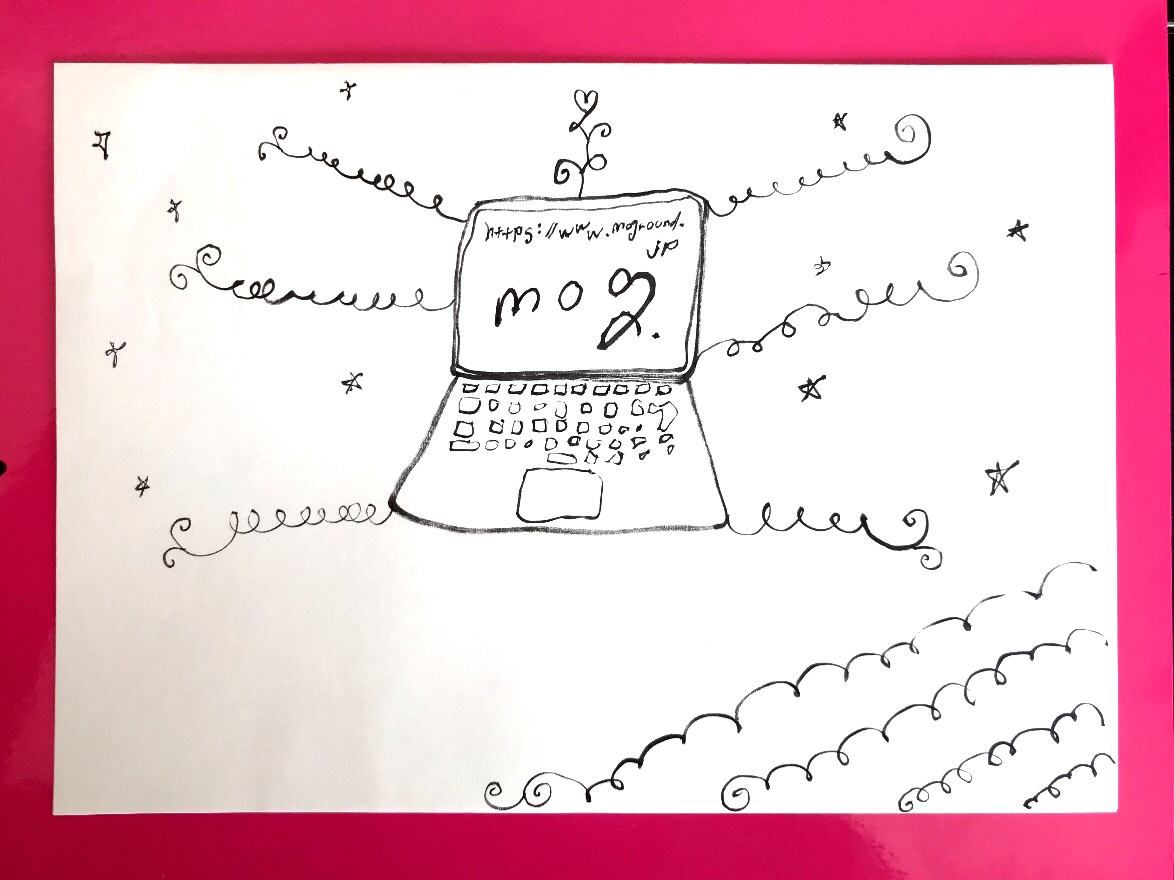 https://www.moground.
jp
mog.